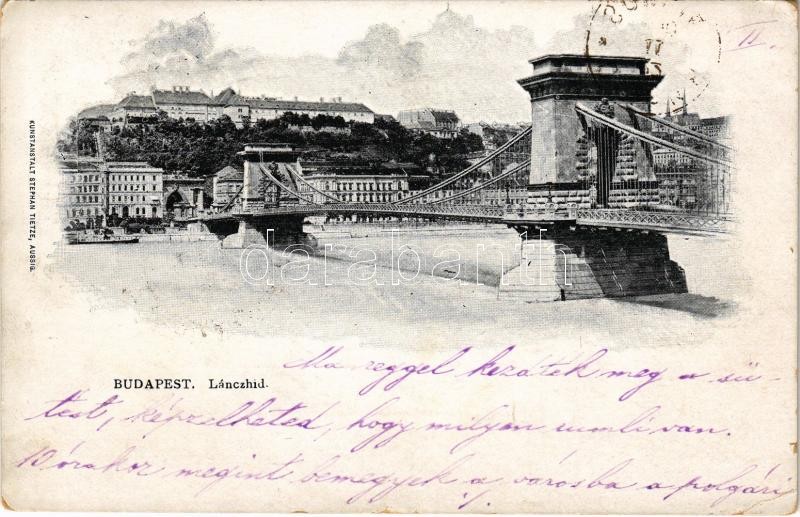 II.
KUNSTANSTALT STEPHAN TIETZE, AUSSIG.
darabanth
BUDAPEST. Lánczhid.
Ma reggel kezdték meg a sü-
test, képzelheted, hogy milyen rumli van.
10 órakor megint bemegyek a városba a polgári